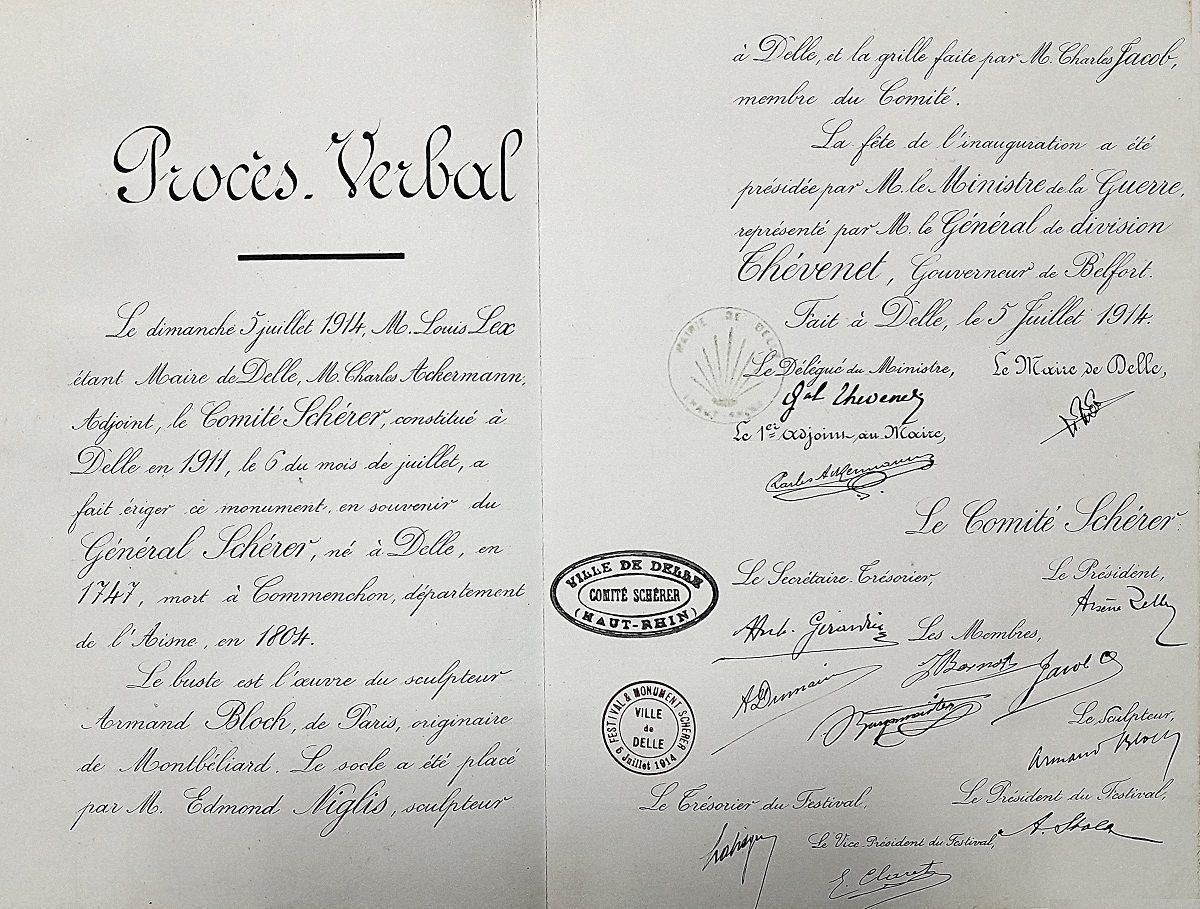 Procès-Verbal
Le dimanche 5 juillet 1914, M. Louis Lex
étant Maire de Delle, M. Charles Ackermann,
Adjoint, le Comité Schérer, constitué à
Delle en 1911, le 6 du mois de juillet, a
fait ériger ce monument en souvenir du
Général Schérer, né à Delle, en
1747, mort à Commenchon, département
de l'Aisne, en 1804.
Le buste est l'œuvre du sculpteur
Armand Bloch, de Paris, originaire
de Montbéliard. Le socle a été placé
par M. Edmond Niglis, sculpteur
à Delle, et la grille faite par M. Charles Jacob,
membre du Comité.
La fête de l'inauguration a été
présidée par M. le Ministre de la Guerre,
représenté par M. le Général de division
Thévenet, Gouverneur de Belfort.
Fait à Delle, le 5 Juillet 1914.
MAIRIE DE DELLE
(HAUT-RHIN)
Le Délégué du Ministre,
Gal Thevenet
Le Maire de Delle,
Le 1er Adjoint au Maire,
Charles Ackermann
Le Comité Schérer.
VILLE DE DELLE
COMITÉ SCHÉRER
(HAUT-RHIN)
Le Secrétaire-Trésorier,
Le Président,
Arsène Zelle
Les Membres,
Jacob
FESTIVAL & MONUMENT SCHERER
VILLE
de
DELLE
Juillet 1914
Le Sculpteur,
Armand Bloch
Le Trésorier du Festival,
Le Président du Festival,
Le Vice-Président du Festival,